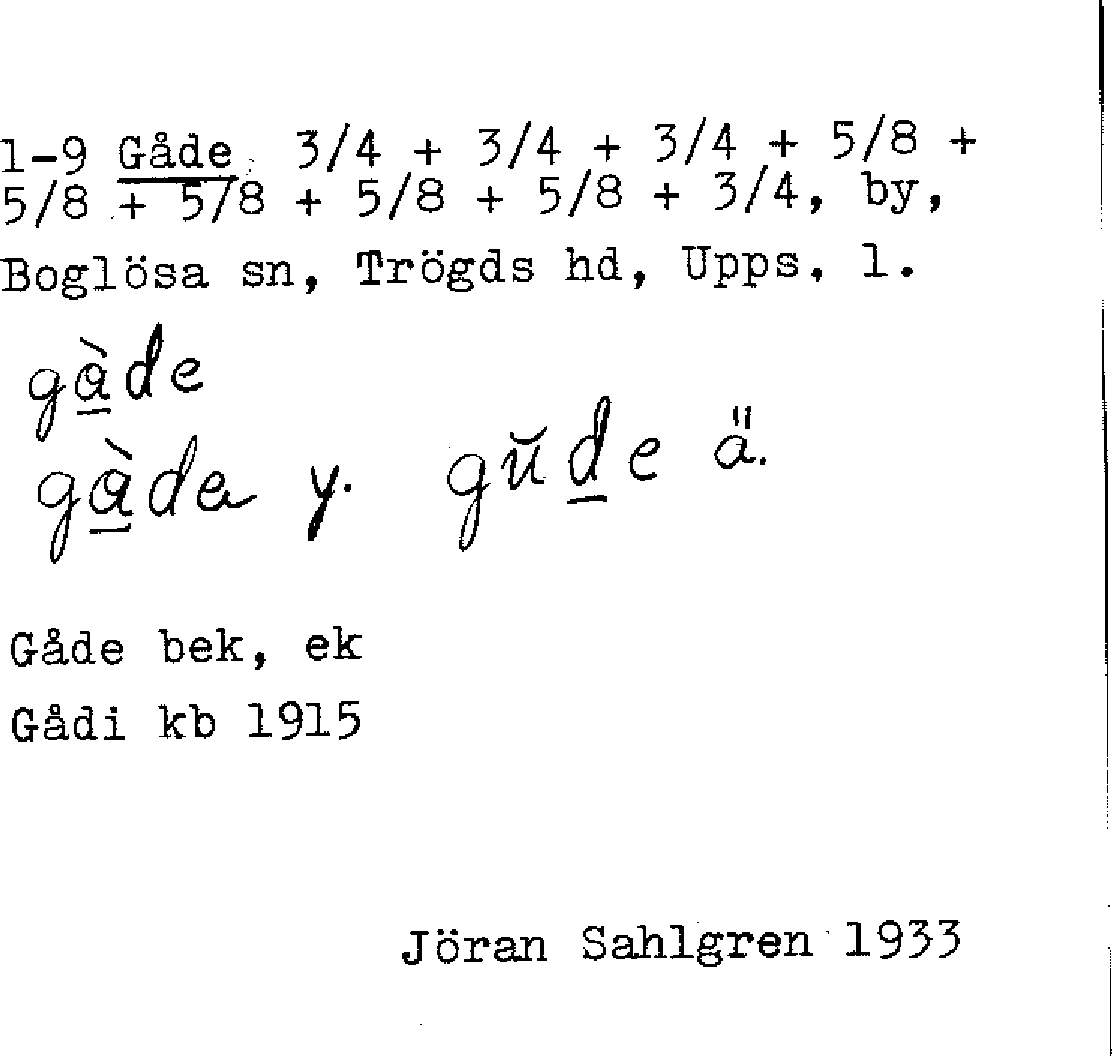 1-9 Gåde 3/4 + 3/4 + 3/4 + 5/8 +
5/8 + 5/8 + 5/8 + 5/8 + 3/4, by,
Boglösa sn, Trögds hd, Upps. l.
gàde
gàde y. gŭde ä.
Gåde bek, ek
Gådi kb 1915
Jöran Sahlgren 1933